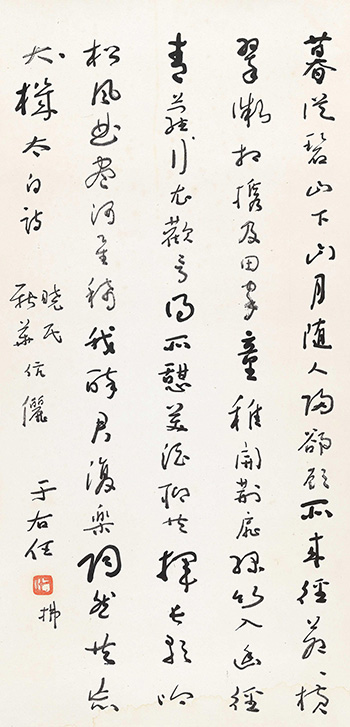 暮從碧山下山月隨人歸卻顧所來徑蒼〻橫
翠微相攜及田家童稚開荊扉綠竹入幽徑
青蘿行衣歡言得所憩美酒聊共揮長歌吟
松風曲盡河星稀我醉君復樂陶然共忘
機太白詩
曉民
伉儷
于右任
拂